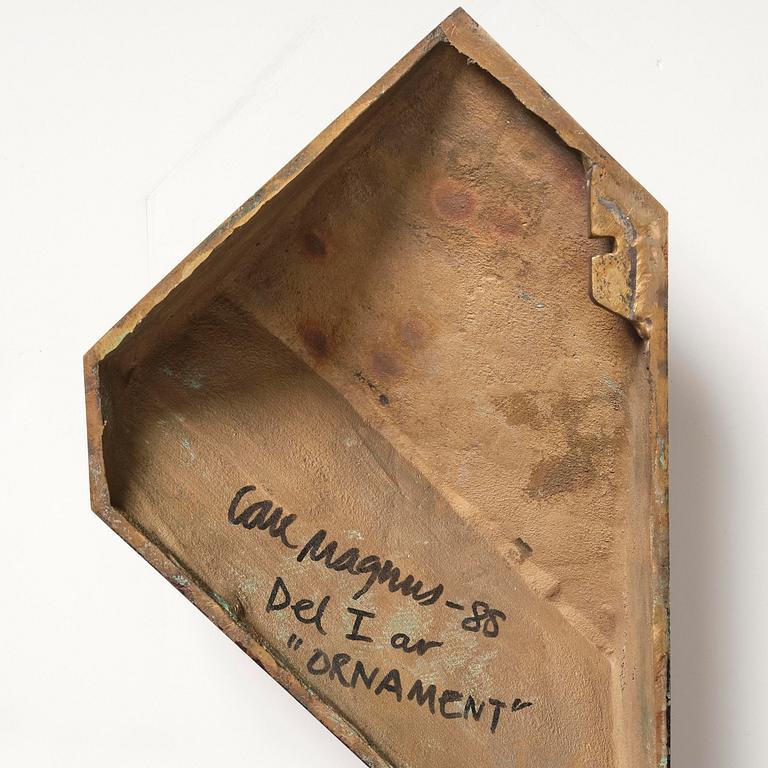 Carl Magnus -88
Del I av
"ORNAMENT"